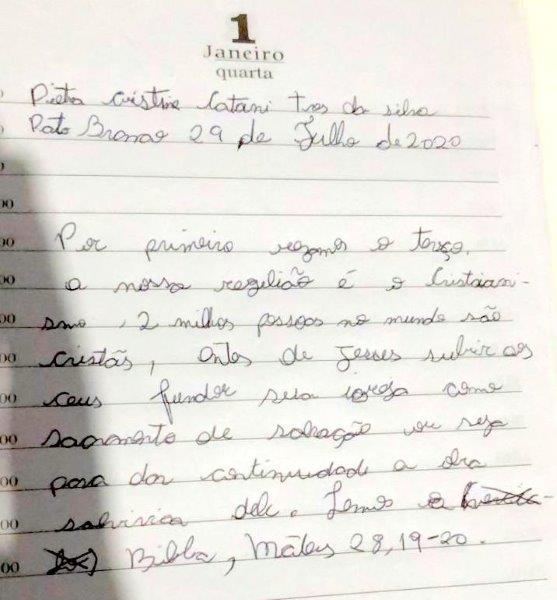 1
Janeiro
quarta
Pietra Cristine Catani Tres da silva
Pato Branco 29 de Julho de 2020
Por primeiro rezamos o terço.
a nossa regelião é o Cristiani-
smo, 2 milhos pessoas no mundo são
cristãs, Antes de Jesses subir aos
ceus fundor sua igreja como
sacramento de salvação ou seja
para dar continuidade a obra
salvivica dele. Lemos a
Bibla, Mateus 28,19-20.